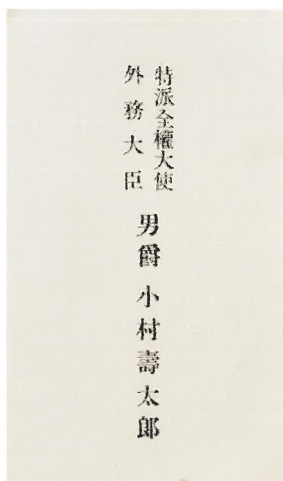 特派全權大使
外務大臣
男爵 小村壽太郎